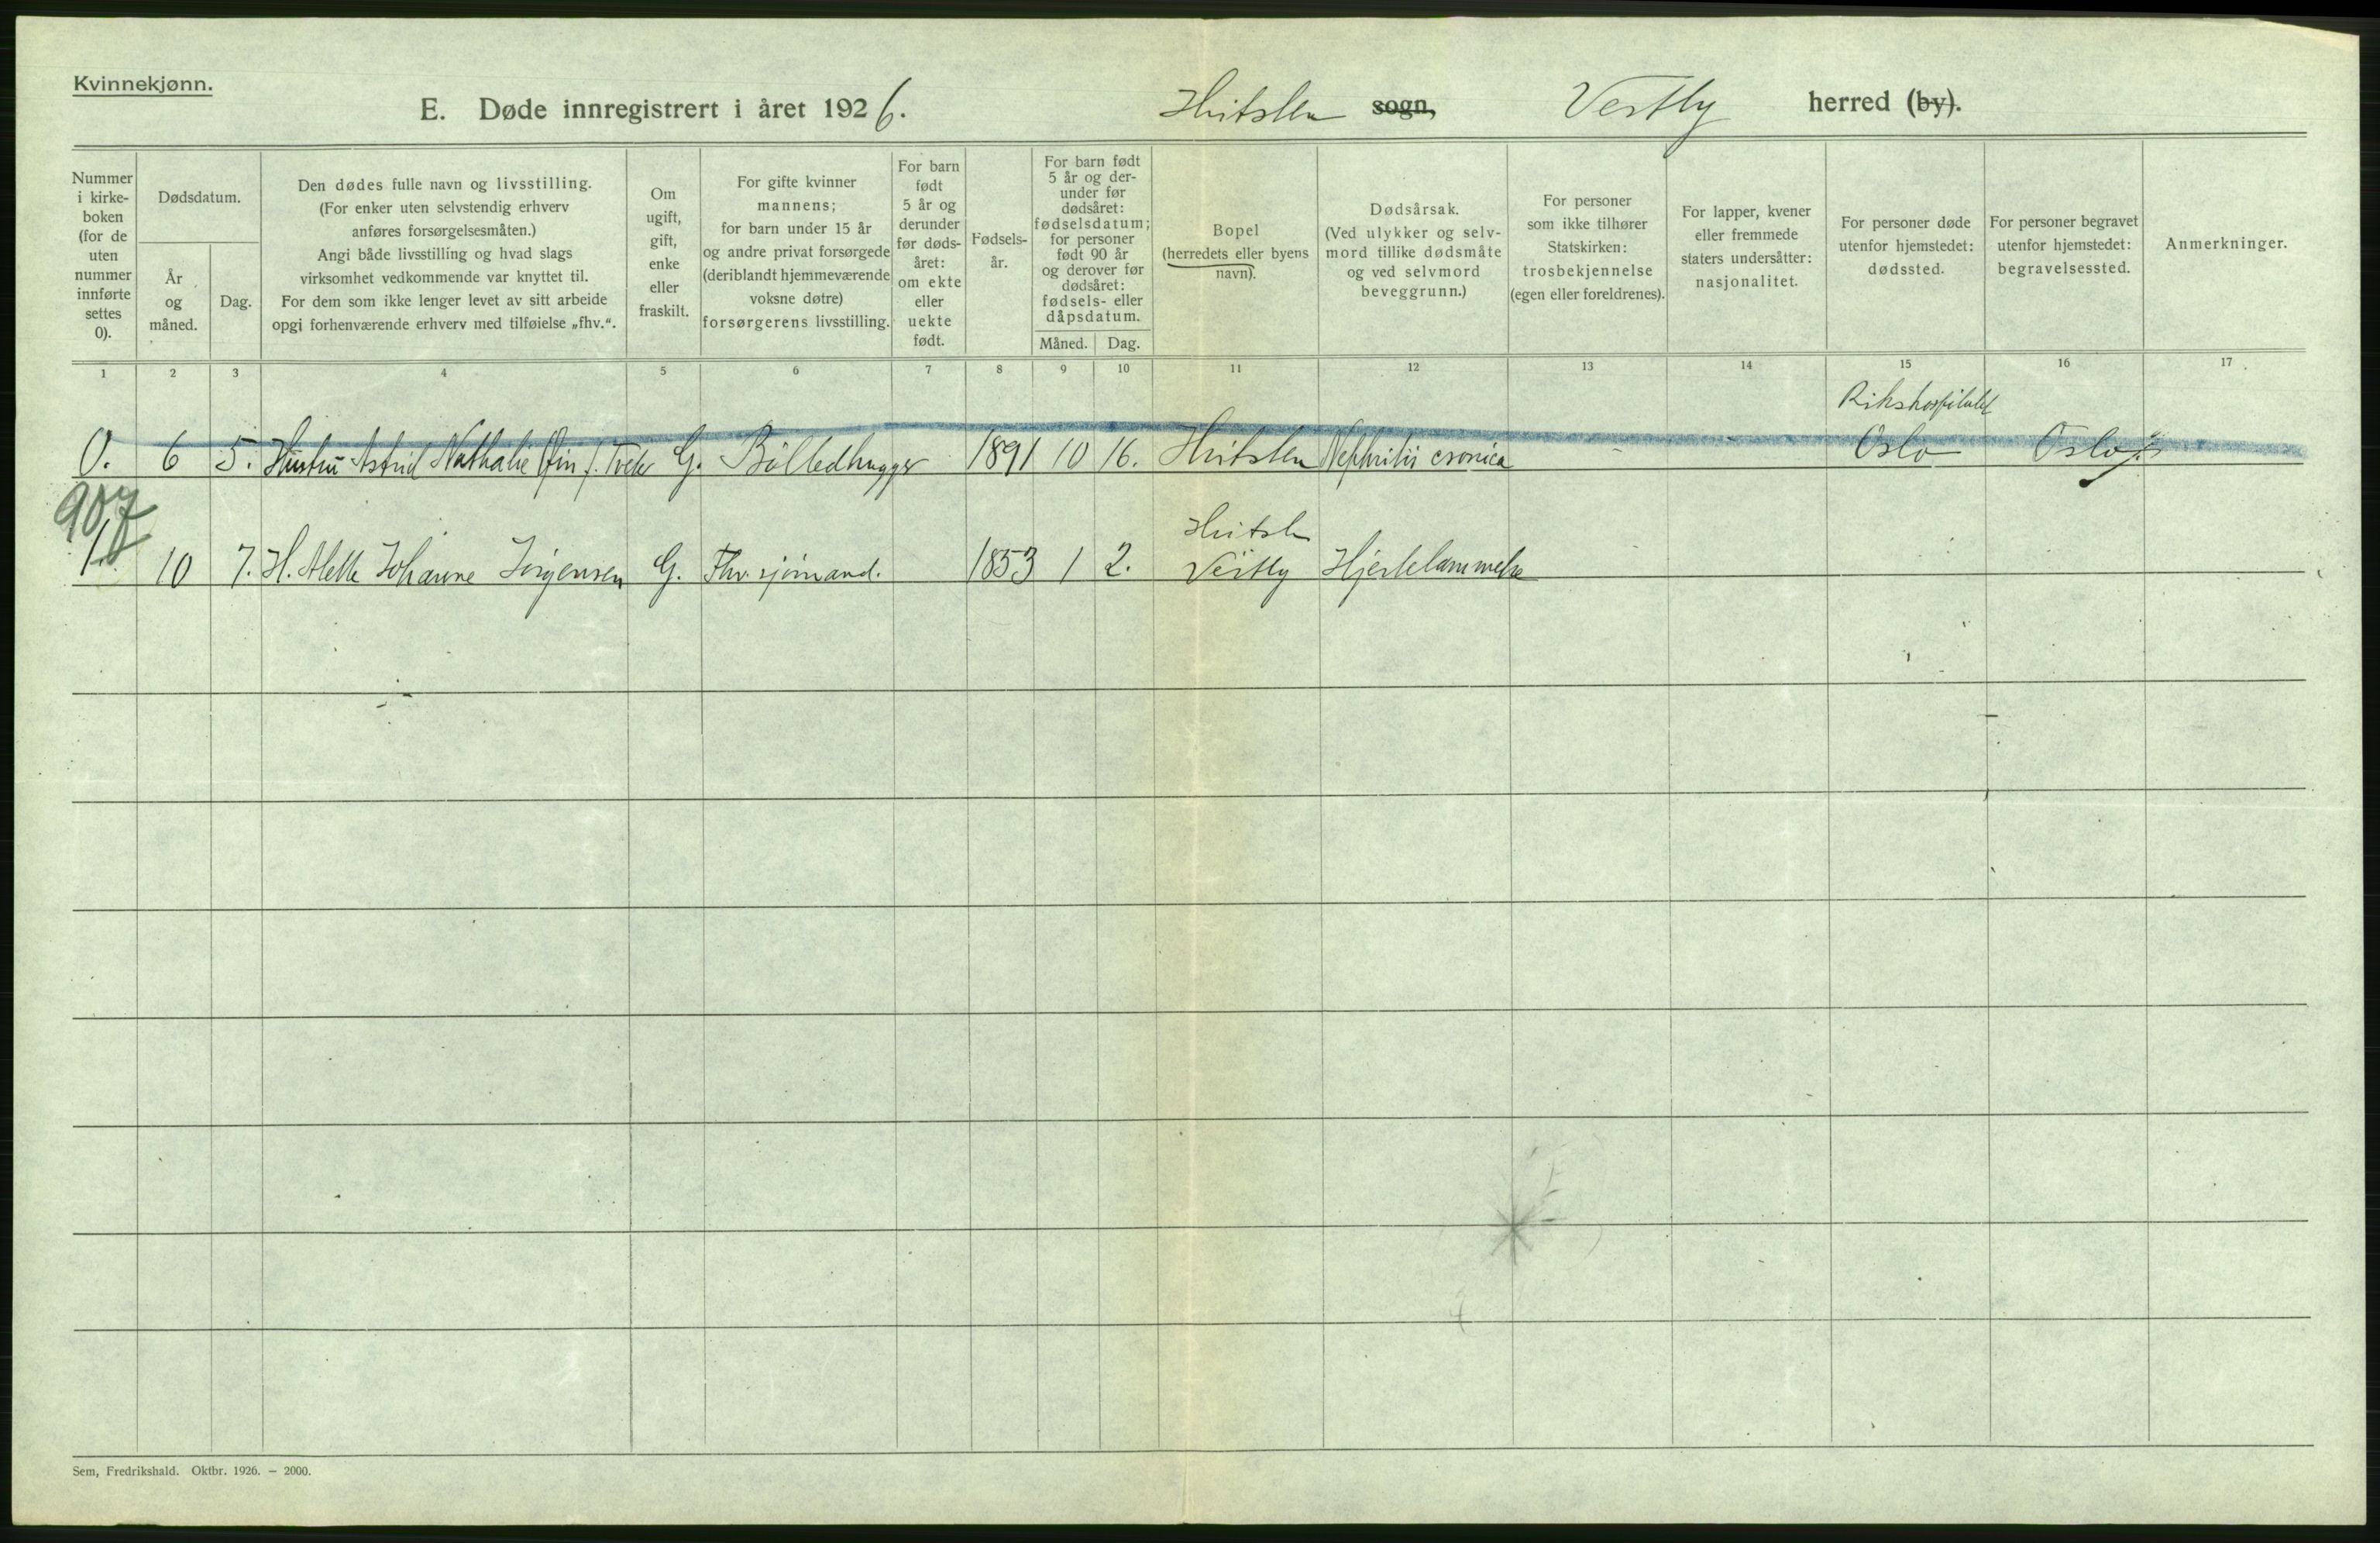 Kvinnekjønn.
E. Døde innregistrert i året 1926. Hvitsten sogn, Vestby herred (by).
Nummer i kirke-boken (for de uten nummer innførte settes 0).
Dødsdatum.
År og måned.
Dag.
Den dødes fulle navn og livsstilling.
(For enker uten selvstendig erhverv
anføres forsørgelsesmåten.)
Angi både livsstilling og hvad slags
virksomhet vedkommende var knyttet til.
For dem som ikke lenger levet av sitt arbeide
opgi forhenværende erhverv med tilføielse „fhv.“.
Om
ugift,
gift,
enke
eller
fraskilt.
For gifte kvinner
mannens;
for barn under 15 år
og andre privat forsørgede
(deriblandt hjemmeværende
voksne døtre)
forsørgerens livsstilling.
For barn
født
5 år og
derunder
før døds-
året:
om ekte
eller
uekte
født.
Fødsels-
år.
For barn født
5 år og der-
under før
dødsåret:
fødselsdatum;
for personer
født 90 år
og derover før
dødsåret:
fødsels- eller
dåpsdatum.
Måned. Dag.
Bopel
(herredets eller byens
navn).
Dødsårsak.
(Ved ulykker og selv-
mord tillike dødsmåte
og ved selvmord
beveggrunn.)
For personer
som ikke tilhører
Statskirken:
trosbekjennelse
(egen eller foreldrenes).
For lapper, kvener
eller fremmede
staters undersåtter:
nasjonalitet.
For personer døde
utenfor hjemstedet:
dødssted.
For personer begravet
utenfor hjemstedet:
begravelsessted.
Anmerkninger.
1 2 3 4 5 6 7 8 9 10 11 12 13 14 15 16 17
Rikshospitalet
0. 6 5. Hustru Astrid Nathalie f. G. 1891 10 16. Hvitsten Nephritis cronica Oslo Oslo
907
Hvitsten
1. 10 7. H. Alette Johanne Jörgensen G. Fhv. sjömand. 1853 1 2. Vestby Hjertelammelse
Sem, Fredrikshald. Oktbr. 1926. — 2000.